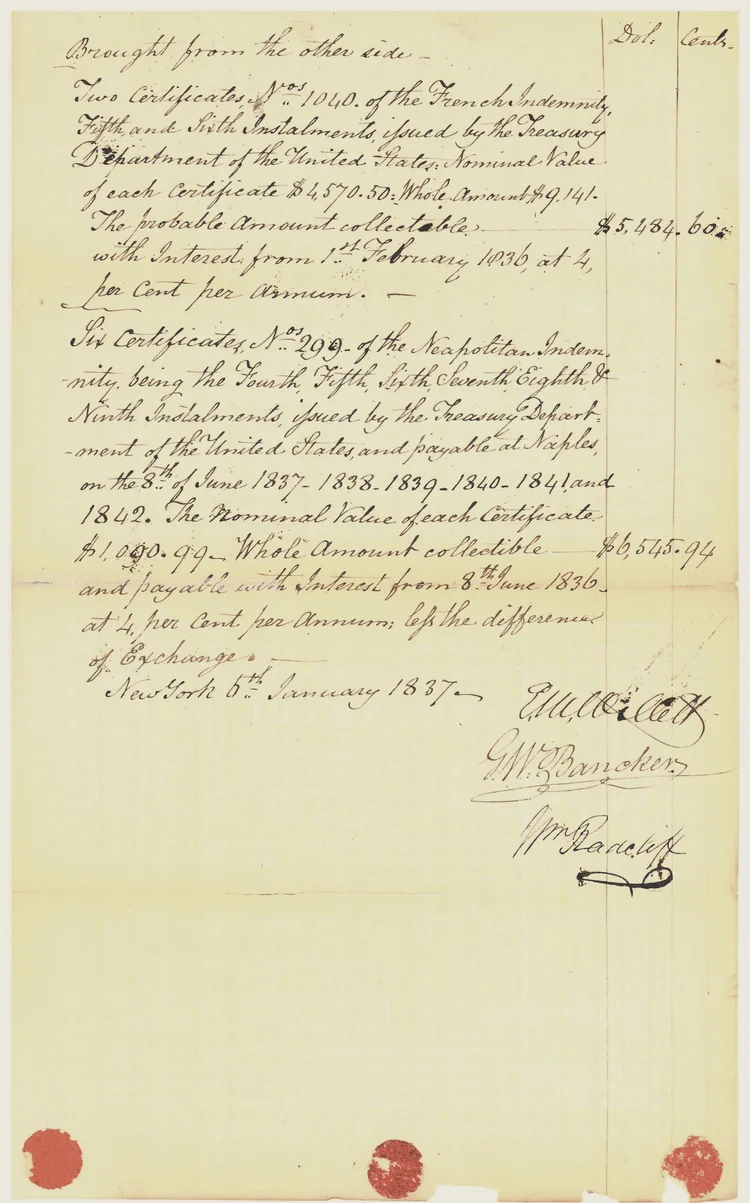 Brought from the other side —
Dol: Cents.
Two Certificates, Nos. 1040. of the French Indemnity,
Fifth, and Sixth Instalments, issued by the Treasury
Department of the United States: Nominal Value
of each Certificate $4,570.50: Whole Amount $9,141.
The probable Amount collectable: $5,484.60
with Interest, from 1st February 1836, at 4,
per Cent per Annum. —
Six Certificates, Nos. 299 - of the Neapolitan Indem-
-nity, being the Fourth, Fifth, Sixth, Seventh, Eighth, &
Ninth Instalments, issued by the Treasury Depart-
-ment of the United States, and payable at Naples,
on the 8th of June 1837 - 1838 - 1839 - 1840 - 1841, and
1842. The Nominal Value of each Certificate,
$1,090.99 - Whole Amount collectible — $6,545.94
and payable with Interest from 8th June 1836 -
at 4, per Cent per Annum; less the difference
of Exchange. —
New York 6th January 1837 —
G. W. Bancker
Wm Radcliff